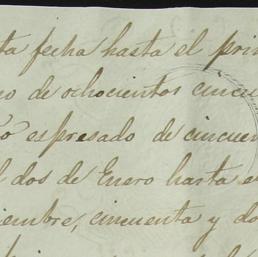 ta fecha hasta el prim
no de ochocientos cincu
o espresado de cincuen
l dos de Enero hasta e
iembre, cincuenta y do